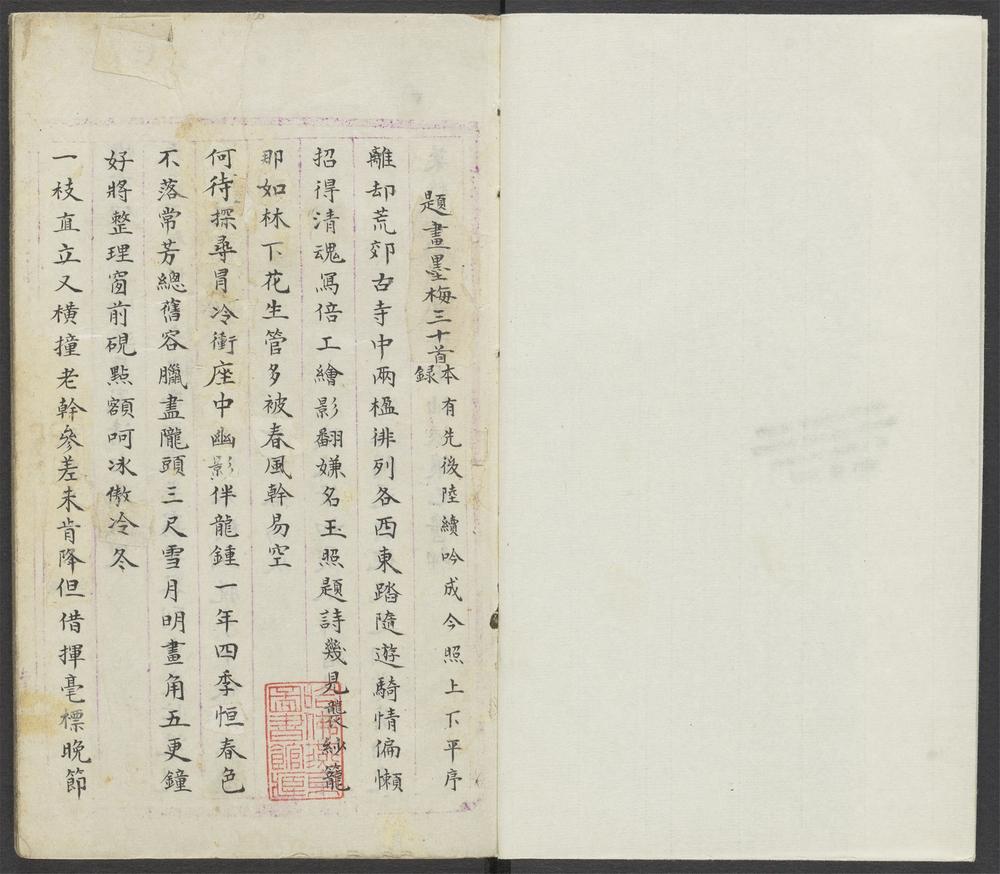 題畫墨梅三十首本有先後陸續吟成今照上下平序録
離却荒郊古寺中兩楹徘列各西東踏隨遊騎情偏懶
招得清魂寫倍工繪影翻嫌名玉照題詩幾見襲紗籠
那如林下花生管多被春風幹易空
何待探尋冐冷衝座中幽影伴龍鍾一年四季恒春色
不落常芳總舊容臘盡隴頭三尺雪月明畫角五更鐘
好將整理窗前硯點額呵冰傲冷冬
一枝直立又橫撞老幹參差未肯降但借揮毫標晩節
哈佛燕京
圖書館